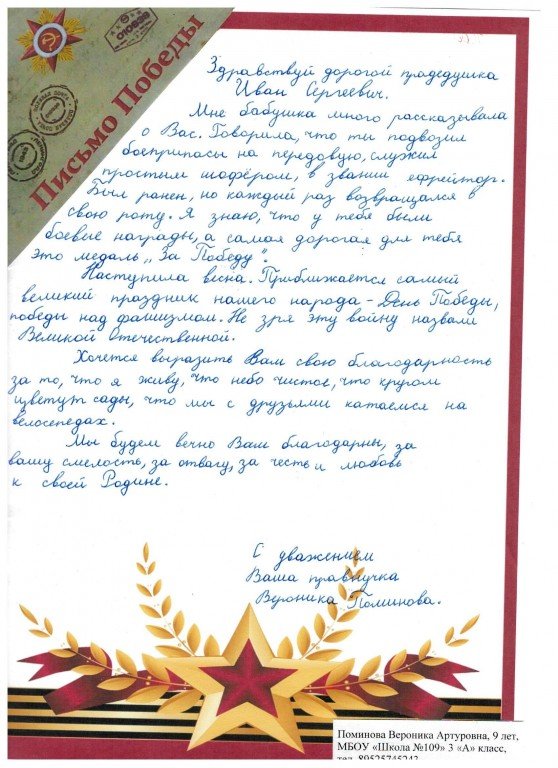 Письмо Победы
Здравствуй дорогой прадедушка
Иван Сергеевич.
Мне бабушка много рассказывала
о Вас. Говорила, что ты подвозил
боеприпасы на передовую, служил
простым шофёром, в звании ефрейтор.
Был ранен, но каждый раз возвращался в
свою роту. Я знаю, что у тебя были
боевые награды, а самая дорогая для тебя
это медаль „За Победу".
Наступила весна. Приближается самый
великий праздник нашего народа - День Победы,
победы над фашизмом. Не зря эту войну назвали
Великой Отечественной.
Хочется выразить Вам свою благодарность
за то, что я живу, что небо чистое, что кругом
цветут сады, что мы с друзьями катаемся на
велосепедах.
Мы будем вечно Вам благодарны, за
вашу смелость, за отвагу, за честь и любовь
к своей Родине.
С уважением
Ваша правнучка
Вероника Поминова.
Поминова Вероника Артуровна, 9 лет,
МБОУ «Школа №109» 3 «А» класс,